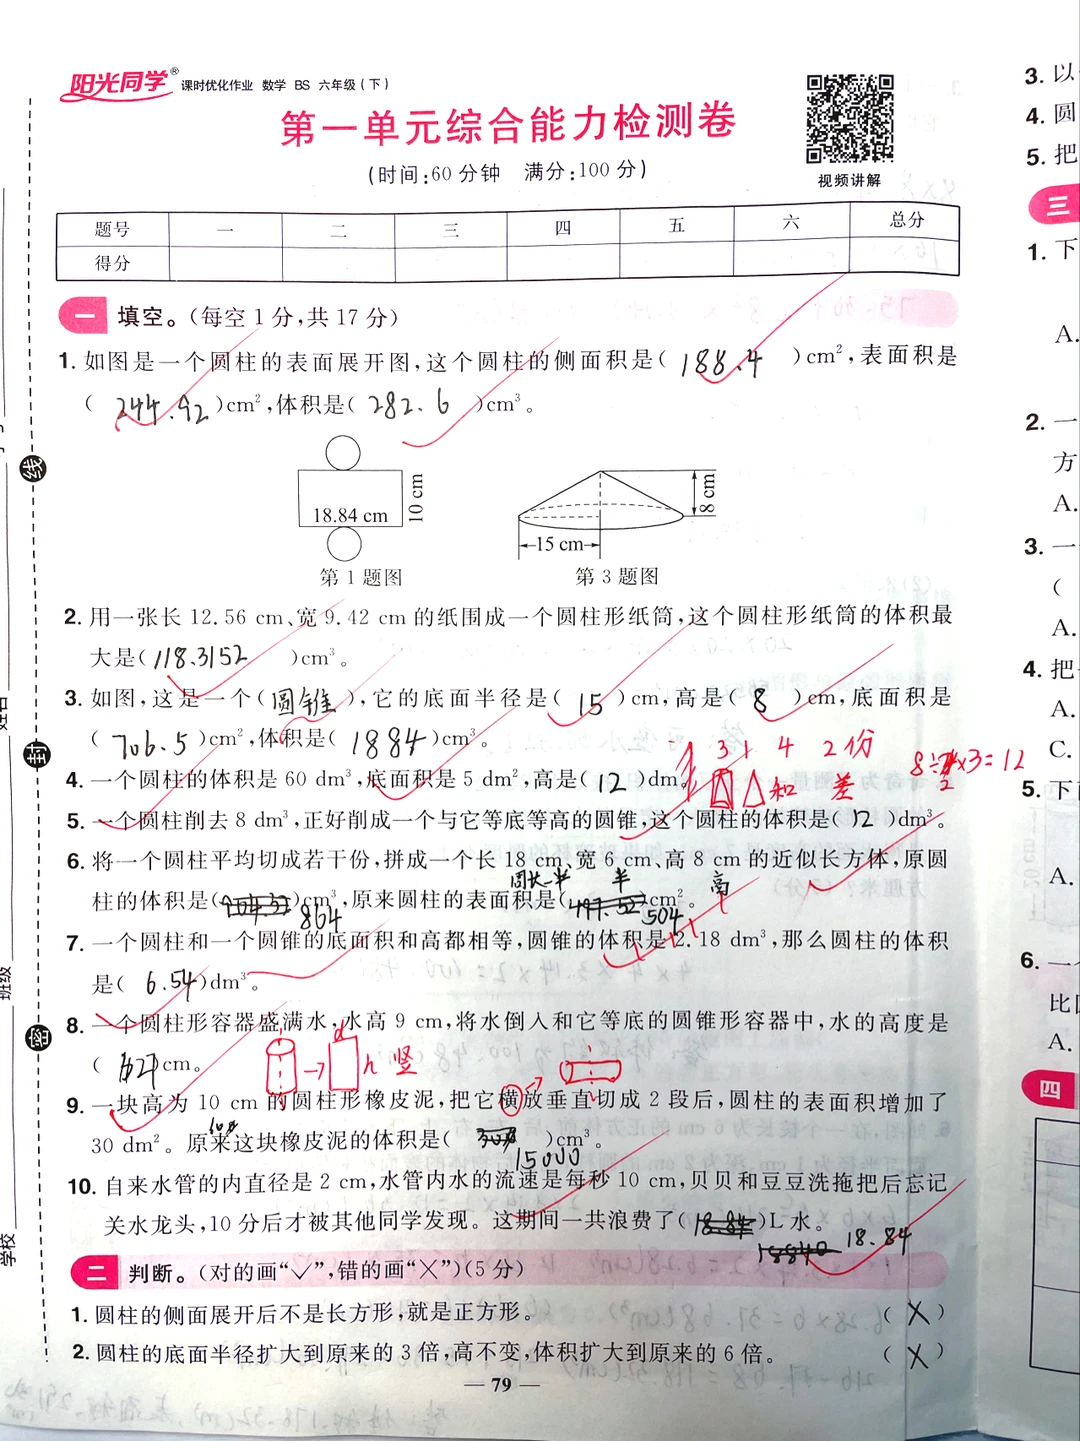 阳光同学® 课时优化作业 数学 BS 六年级(下)
第一单元综合能力检测卷
(时间:60分钟 满分:100分)
视频讲解
题号 一 二 三 四 五 六 总分
得分
一 填空。(每空1分,共17分)
1. 如图是一个圆柱的表面展开图,这个圆柱的侧面积是( 188.4 )cm²,表面积是
( 244.92 )cm²,体积是( 282.6 )cm³。
18.84 cm 10 cm
15 cm 8 cm
第1题图 第3题图
2. 用一张长12.56 cm、宽9.42 cm的纸围成一个圆柱形纸筒,这个圆柱形纸筒的体积最
大是( 118.3152 )cm³。
3. 如图,这是一个( 圆锥 ),它的底面半径是( 15 )cm,高是( 8 )cm,底面积是
( 706.5 )cm²,体积是( 1884 )cm³。
3 1 4 2份
和 差
8÷2×3=12
4. 一个圆柱的体积是60 dm³,底面积是5 dm²,高是( 12 )dm。
5. 一个圆柱削去8 dm³,正好削成一个与它等底等高的圆锥,这个圆柱的体积是( 12 )dm³。
6. 将一个圆柱平均切成若干份,拼成一个长18 cm、宽6 cm、高8 cm的近似长方体,原圆
周长一半 半 高
柱的体积是( )cm³,原来圆柱的表面积是( )cm²。
864 504
7. 一个圆柱和一个圆锥的底面积和高都相等,圆锥的体积是2.18 dm³,那么圆柱的体积
是( 6.54 )dm³。
8. 一个圆柱形容器盛满水,水高9 cm,将水倒入和它等底的圆锥形容器中,水的高度是
( 27 )cm。
d h 竖
9. 一块高为10 cm的圆柱形橡皮泥,把它横放垂直切成2段后,圆柱的表面积增加了
30 dm²。原来这块橡皮泥的体积是( )cm³。
15000
10. 自来水管的内直径是2 cm,水管内水的流速是每秒10 cm,贝贝和豆豆洗拖把后忘记
关水龙头,10分后才被其他同学发现。这期间一共浪费了( )L水。
18.84
二 判断。(对的画“✓”,错的画“×”)(5分)
1. 圆柱的侧面展开后不是长方形,就是正方形。 ( × )
2. 圆柱的底面半径扩大到原来的3倍,高不变,体积扩大到原来的6倍。 ( × )
— 79 —
线
封
密
姓名
班级
学校
3. 以
4. 圆
5. 把
三
1. 下
A.
2. 一
方
A.
3. 一
(
A.
4. 把
A.
C.
5. 下
A.
6. 一
比
A.
四